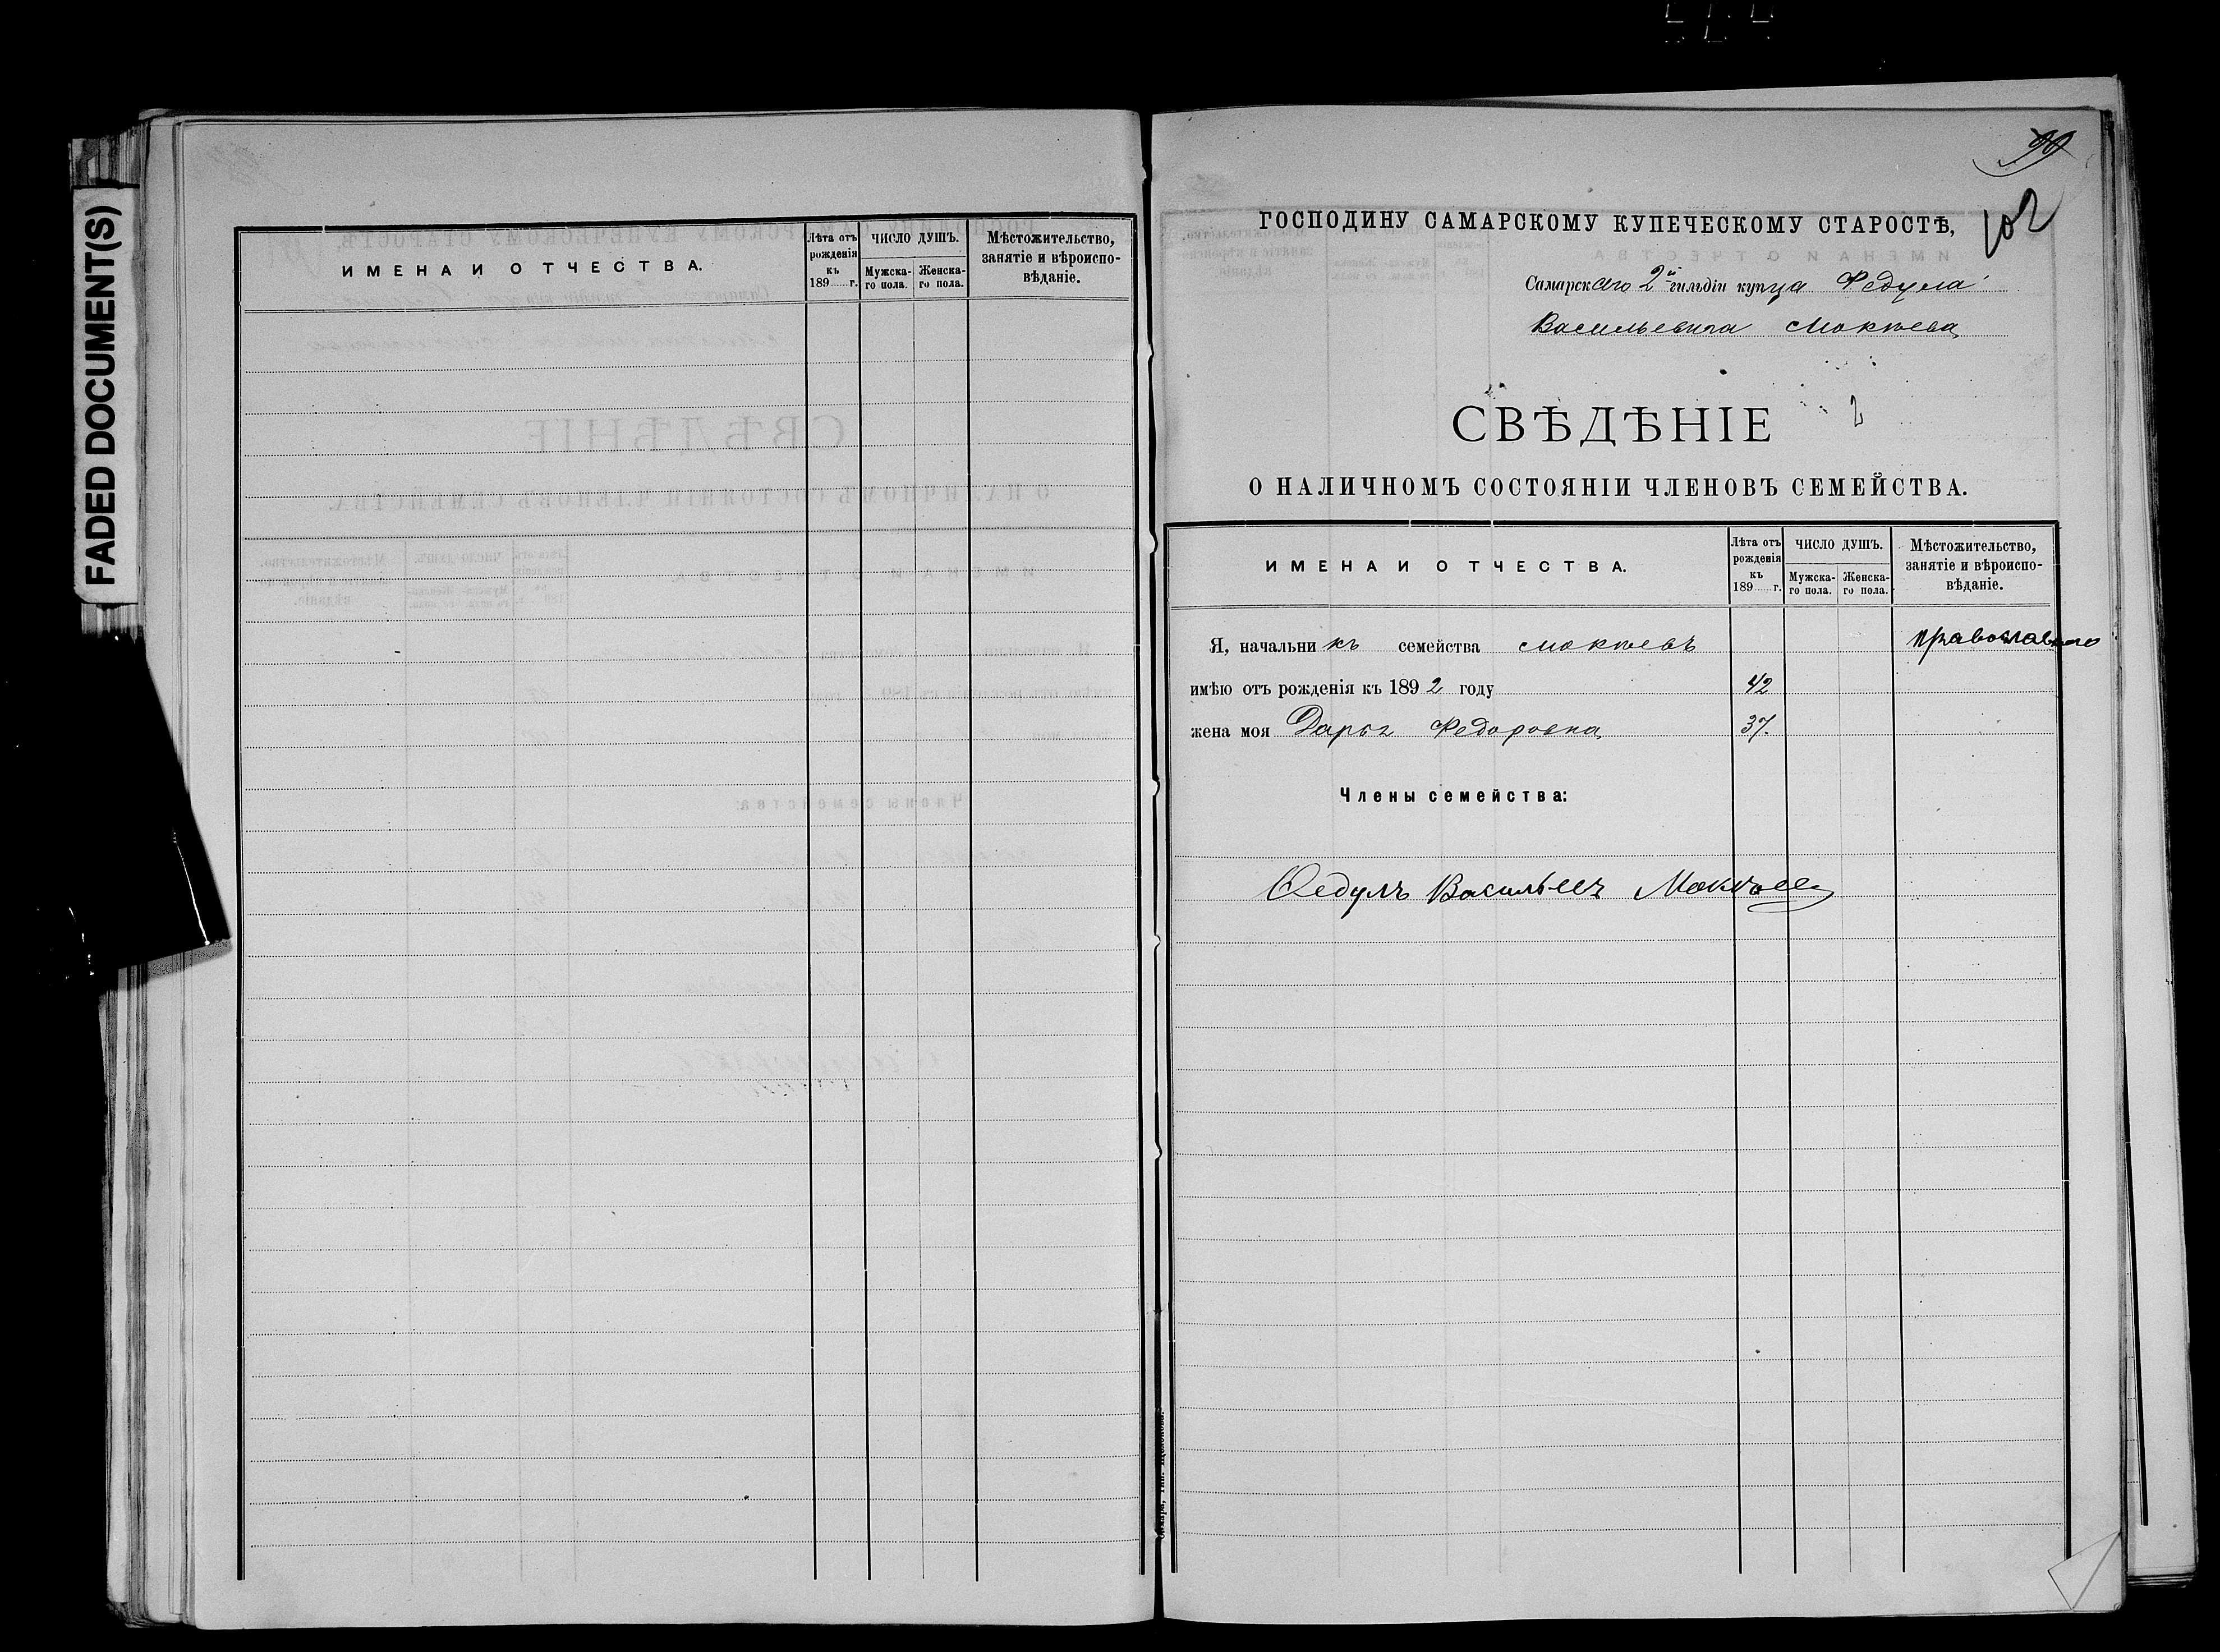 FADED DOCUMENT(S)
ИМЕНА И ОТЧЕСТВА.
Лѣта отъ рожденія къ 189 г.
ЧИСЛО ДУШЪ.
Мужска-го пола.
Женска-го пола.
Мѣстожительство, занятіе и вѣроиспо-вѣданіе.
102
ГОСПОДИНУ САМАРСКОМУ КУПЕЧЕСКОМУ СТАРОСТѢ,
Самарскаго 2й гильдіи купца Федула
Васильевича Мокѣева
СВѢДѢНІЕ
О НАЛИЧНОМЪ СОСТОЯНІИ ЧЛЕНОВЪ СЕМЕЙСТВА.
ИМЕНА И ОТЧЕСТВА.
Лѣта отъ рожденія къ 189 г.
ЧИСЛО ДУШЪ.
Мужска-го пола.
Женска-го пола.
Мѣстожительство, занятіе и вѣроиспо-вѣданіе.
Я, начальникъ семейства Мокѣевъ православнаго
имѣю отъ рожденія къ 1892 году 42
жена моя Дарья Федоровна 37.
Члены семейства:
Федулъ Васильевъ Мокѣевъ